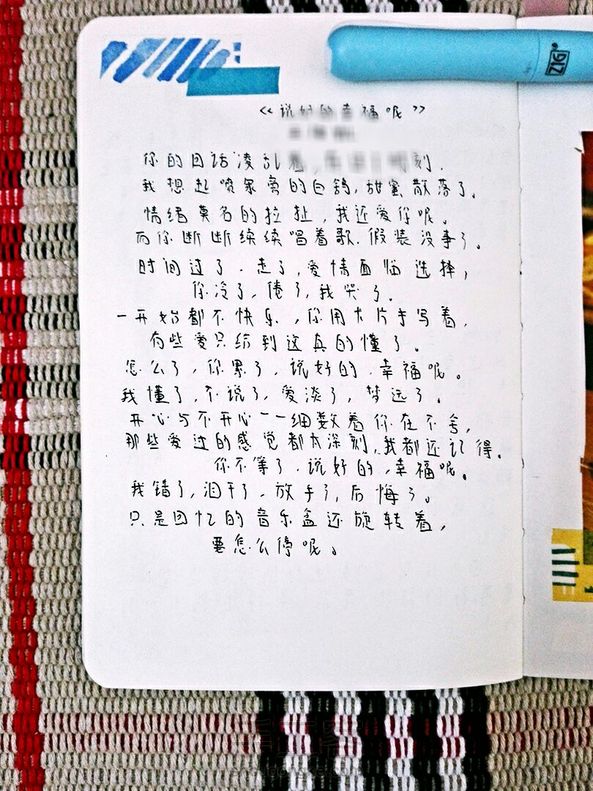 ZIG
《说好的幸福呢》
你的回话凌乱着
我想起喷泉旁的白鸽,甜蜜散落了。
情绪莫名的拉扯,我还爱你呢。
而你断断续续唱着歌.假装没事了。
时间过了.走了,爱情面临选择,
你冷了,倦了,我哭了.
一开始都不快乐,你用卡片手写着,
有些爱只给到这真的懂了.
怎么了,你累了,说好的.幸福呢。
我懂了,不说了,爱淡了,梦远了.
开心与不开心一一细数着你在不舍,
那些爱过的感觉都太深刻,我都还记得.
你不等了.说好的,幸福呢。
我错了,泪干了.放手了,后悔了。
只是回忆的音乐盒还旋转着,
要怎么停呢。